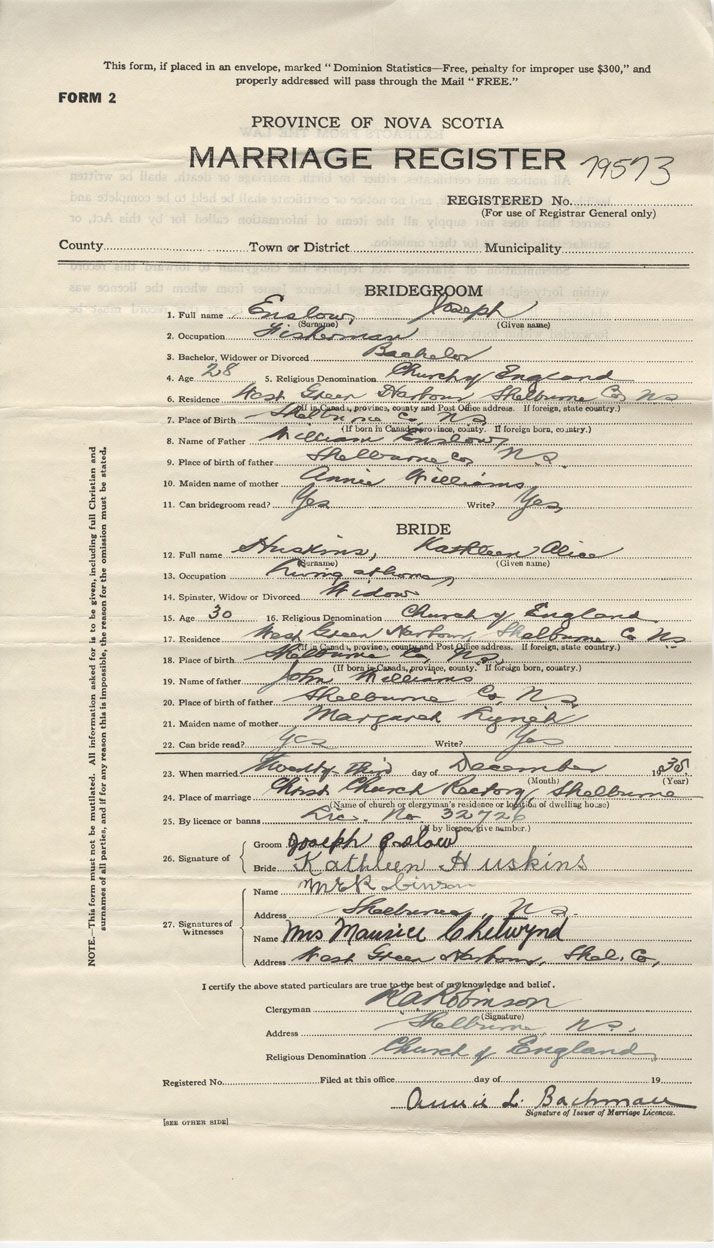 This form, if placed in an envelope, marked "Dominion Statistics—Free, penalty for improper use $300," and
properly addressed will pass through the Mail "FREE."
FORM 2
PROVINCE OF NOVA SCOTIA
MARRIAGE REGISTER 79573
REGISTERED No.
(For use of Registrar General only)
County Town or District Municipality
BRIDEGROOM
1. Full name Enslow, Joseph
(Surname) (Given name)
2. Occupation Fisherman
3. Bachelor, Widower or Divorced Bachelor
4. Age 28 5. Religious Denomination Church of England
6. Residence West Green Harbour, Shelburne Co, N S
(If in Canada, province, county and Post Office address. If foreign, state country.)
7. Place of Birth Shelburne Co, N.S.
(If born in Canada, province, county. If foreign born, country.)
8. Name of Father William Enslow,
9. Place of birth of father Shelburne Co, N.S.
10. Maiden name of mother Annie Williams
11. Can bridegroom read? Yes Write? Yes,
BRIDE
12. Full name Huskins, Kathleen Alice
(Surname) (Given name)
13. Occupation Living at home,
14. Spinster, Widow or Divorced Widow
15. Age 30 16. Religious Denomination Church of England
17. Residence West Green Harbour, Shelburne Co N.S.
(If in Canada, province, county and Post Office address. If foreign, state country.)
18. Place of birth Shelburne Co, N.S.
(If born in Canada, province, county. If foreign born, country.)
19. Name of father John Williams
20. Place of birth of father Shelburne Co, N S.
21. Maiden name of mother Margaret
22. Can bride read? Yes Write? Yes
23. When married Twenty-third day of December 1935.
(Month) (Year)
24. Place of marriage Christ Church Rectory, Shelburne
(Name of church or clergyman's residence or location of dwelling house)
25. By licence or banns Lic. No. 32726
(If by licence, give number.)
26. Signature of
Groom Joseph
Bride Kathleen Huskins
27. Signatures of Witnesses
Name
Address Shelburne, N S.
Name Mrs Maurice Chetwynd
Address West Green Harbour, Shel. Co,
I certify the above stated particulars are true to the best of my knowledge and belief.
Clergyman Robinson
(Signature)
Address Shelburne, N.S.
Religious Denomination Church of England
Registered No. Filed at this office day of 19
Annie L. Bachman
Signature of Issuer of Marriage Licences.
[SEE OTHER SIDE]
NOTE.—This form must not be mutilated. All information asked for is to be given, including full Christian and
surnames of all parties, and if for any reason this is impossible, the reason for the omission must be stated.